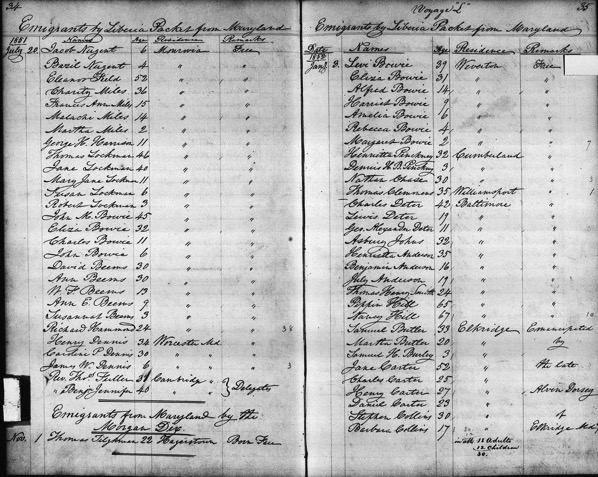 34
Emigrants by Liberia Packet from Maryland
1851 Names Age Residence Remarks
July 20. Jacob Nugent 6 Monrovia Free
Bazil Nugent 4 " "
Eleanor Field 52 " "
Charity Miles 36 " "
Francis Ann Miles 15 " "
Malachi Miles 14 " "
Martha Miles 2 " "
George H. Harrison 11 " "
Thomas Lockman 46 " "
Jane Lockman 40 " "
Mary Jane Lockm. 11 " "
Nelson Lockman 6 " "
Robert Lockman 3 " "
John M. Bowie 45 " "
Eliza Bowie 32 " "
Charles Bowie 11 " "
John Bowie 6 " "
David Beems 30 " "
Ann Beems 30 " "
W. F. Beems 13 " "
Ann E. Beems 9 " "
Susannah Beems 3 " "
Richard Hammond 24 " " 38
Henry Dennis 34 Worcester Md "
Caroline P. Dennis 30 " "
James W. Dennis 6 " " 3
Rev. Thos. Fuller 39 Cambridge
" Benj. Jennifer 40 " } Delegates
Emigrants from Maryland by the
Morgan Dix
Nov. 1 Thomas Tilghman 22 Hagerstown Born Free
Voyage 35
Emigrants by Liberia Packet from Maryland
Date Names Age Residence Remarks
Jany 3. Levi Bowie 39 Weverton Free
Eliza Bowie 31 " "
Alfred Bowie 14 " "
Harriet Bowie 9 " "
Amelia Bowie 6 " "
Rebecca Bowie 4 " "
Margaret Bowie 2 " " 7
Henrietta Pinckney 32 Cumberland "
Dennis H. B. Pinckney 3 " "
Nathan Chase 30 " " 3
Thomas Clemmens 35 Williamsport " 1
Charles Deter 42 Baltimore "
Lewis Deter 19 " "
Geo. Alexander Deter 11 " "
Asbury Johns 32 " "
Henrietta Anderson 35 " "
Benjamin Anderson 16 " "
July Anderson 19 " "
Thomas Henry Smith 24 " "
Pippin Hill 65 " "
Hill 67 " "
Samuel Butler 33 Elkridge Emancipated
Martha Butler 20 " by
Samuel H. Burley 3 "
Jane Carter 52 " the late
Charles Carter 25 "
Henry Carter 27 " Alvin Dorsey
Daniel Carter 23 "
Stephen Collins 30 " of
Barbara Collins 17 " Elkridge Md
in all 18 Adults
12 Children
30.